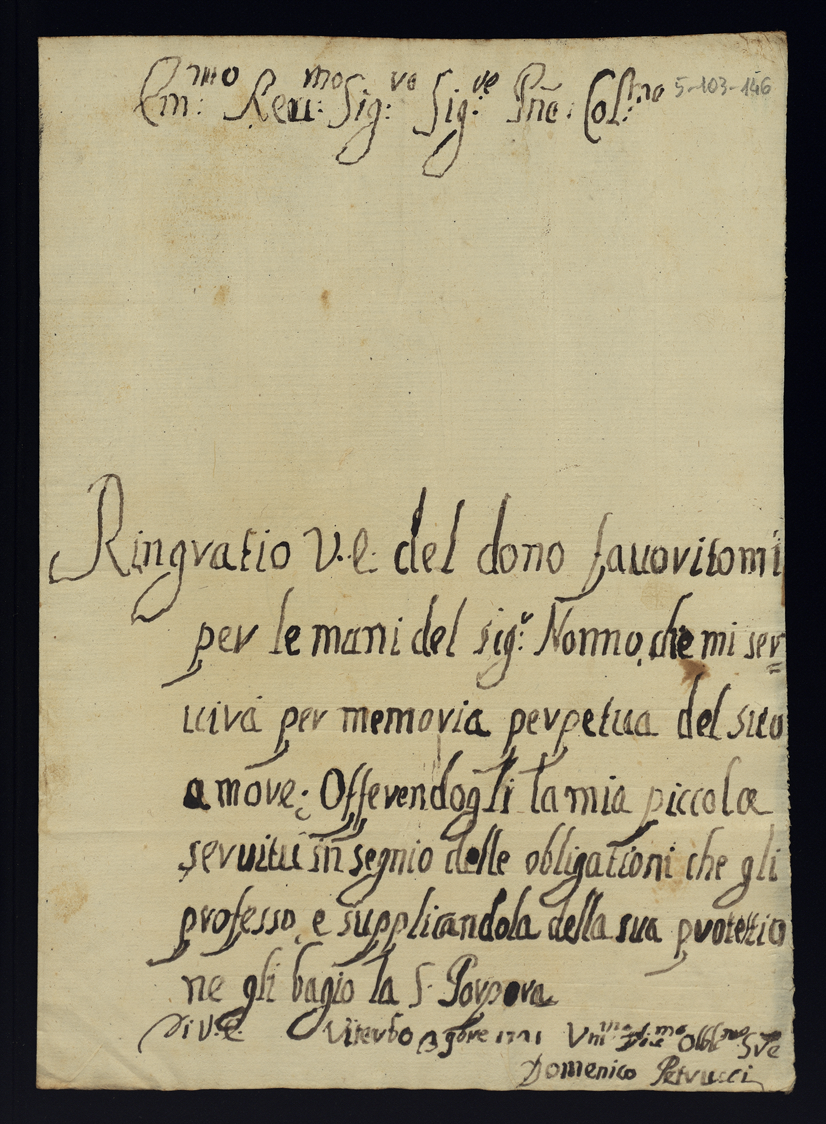 Em:mo Reu:mo Sig:re Sig:re Pñe: Col:mo 5-103-146
Ringratio V. E. del dono fauoritomi
per le mani del sig:r Nonno, che mi ser=
uirà per memoria perpetua del suo
amore; Offerendogli la mia piccola
seruitù in segnio delle obligationi che gli
professo, e supplicandola della sua protettio
ne gli bagio la S. Porpora
Di V. E. Viterbo 9bre Um:mo Obbl:mo S:re
Domenico Petrucci